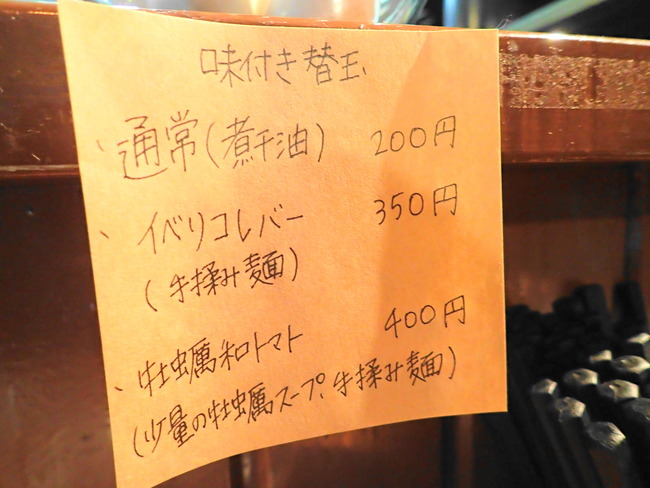 味付き替玉
、通常(煮干油) 200円
、イベリコレバー 350円
(手揉み麺)
、牡蠣和トマト 400円
(少量の牡蠣スープ、手揉み麺)